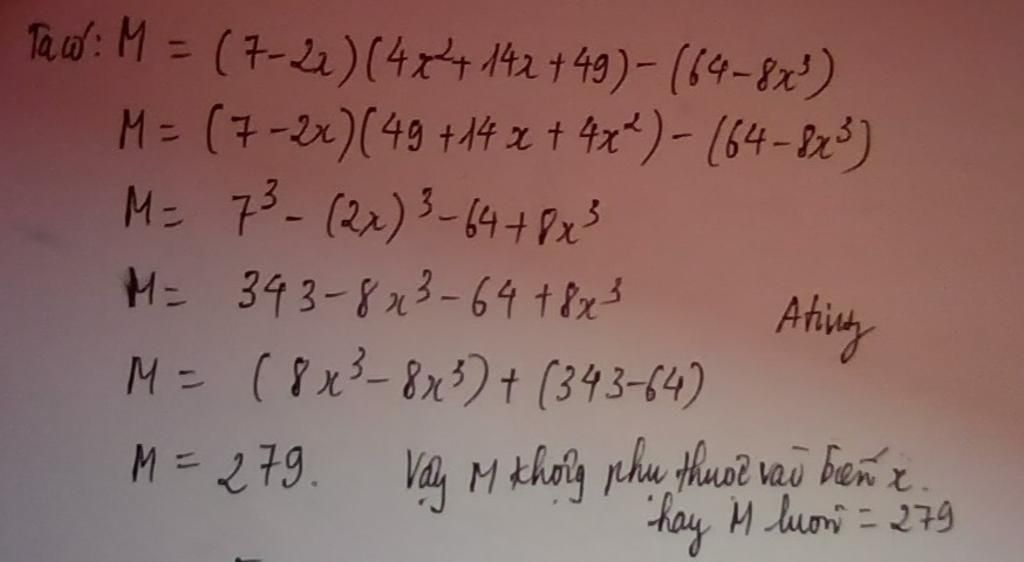 Ta có: M = (7-2x)(4x²+14x+49)-(64-8x³)
M = (7-2x)(49+14x+4x²)-(64-8x³)
M = 7³-(2x)³-64+8x³
M = 343-8x³-64+8x³
M = (8x³-8x³)+(343-64)
M = 279. Vậy M không phụ thuộc vào biến x.
hay M luôn = 279